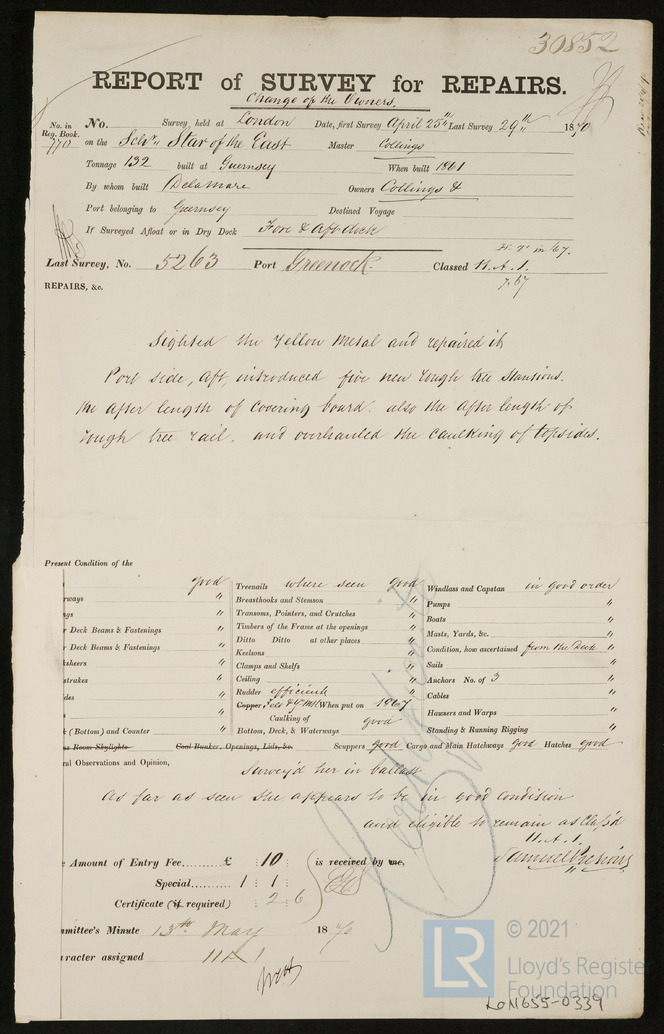 30852
REPORT of SURVEY for REPAIRS.
Change of the Owners.
No. in Reg. Book. 770
No. Survey, held at London Date, first Survey April 25th Last Survey 29th 1870
on the Schr. Star of the East Master Collings
Tonnage 132 built at Guernsey When built 1861
By whom built Delamare Owners Collings &
Port belonging to Guernsey Destined Voyage
If Surveyed Afloat or in Dry Dock Fore & Aft dock
in 67.
Last Survey, No. 5263 Port Greenock. Classed A.1.
7.67
REPAIRS, &c.
Sighted the Yellow Metal and repaired it
Port side, Aft, introduced five new rough tree Stansions.
the after length of covering board. also the after length of
rough tree rail. and overhauled the caulking of topsides.
Present Condition of the
good
rways "
ngs "
r Deck Beams & Fastenings "
r Deck Beams & Fastenings "
ksheers "
strakes "
des "
"
k (Bottom) and Counter "
Treenails where seen good
Breasthooks and Stemson "
Transoms, Pointers, and Crutches "
Timbers of the Frame at the openings "
Ditto Ditto at other places "
Keelsons "
Clamps and Shelfs "
Ceiling "
Rudder efficient "
Copper Felt & Y. Mtl When put on 1867
Caulking of good
Bottom, Deck, & Waterways "
Windlass and Capstan in good order
Pumps "
Boats "
Masts, Yards, &c. "
Condition, how ascertained from the Deck "
Sails "
Anchors No. of 3 "
Cables "
Hawsers and Warps "
Standing & Running Rigging "
Room Skylights Coal Bunker, Openings, Lids, &c. Scuppers good Cargo and Main Hatchways good Hatches good
ral Observations and Opinion,
Survey'd her in ballast
As far as seen she appears to be in good condition
and eligible to remain as Class'd
A.1.
Samuel
Amount of Entry Fee...... £ : 10 : is received by me,
Special......... 1 : 1 :
Certificate (if required) : 2 : 6
mmittee's Minute 13th May 1870
racter assigned A 1
© 2021
LR
Lloyd's Register
Foundation
LON655-0339